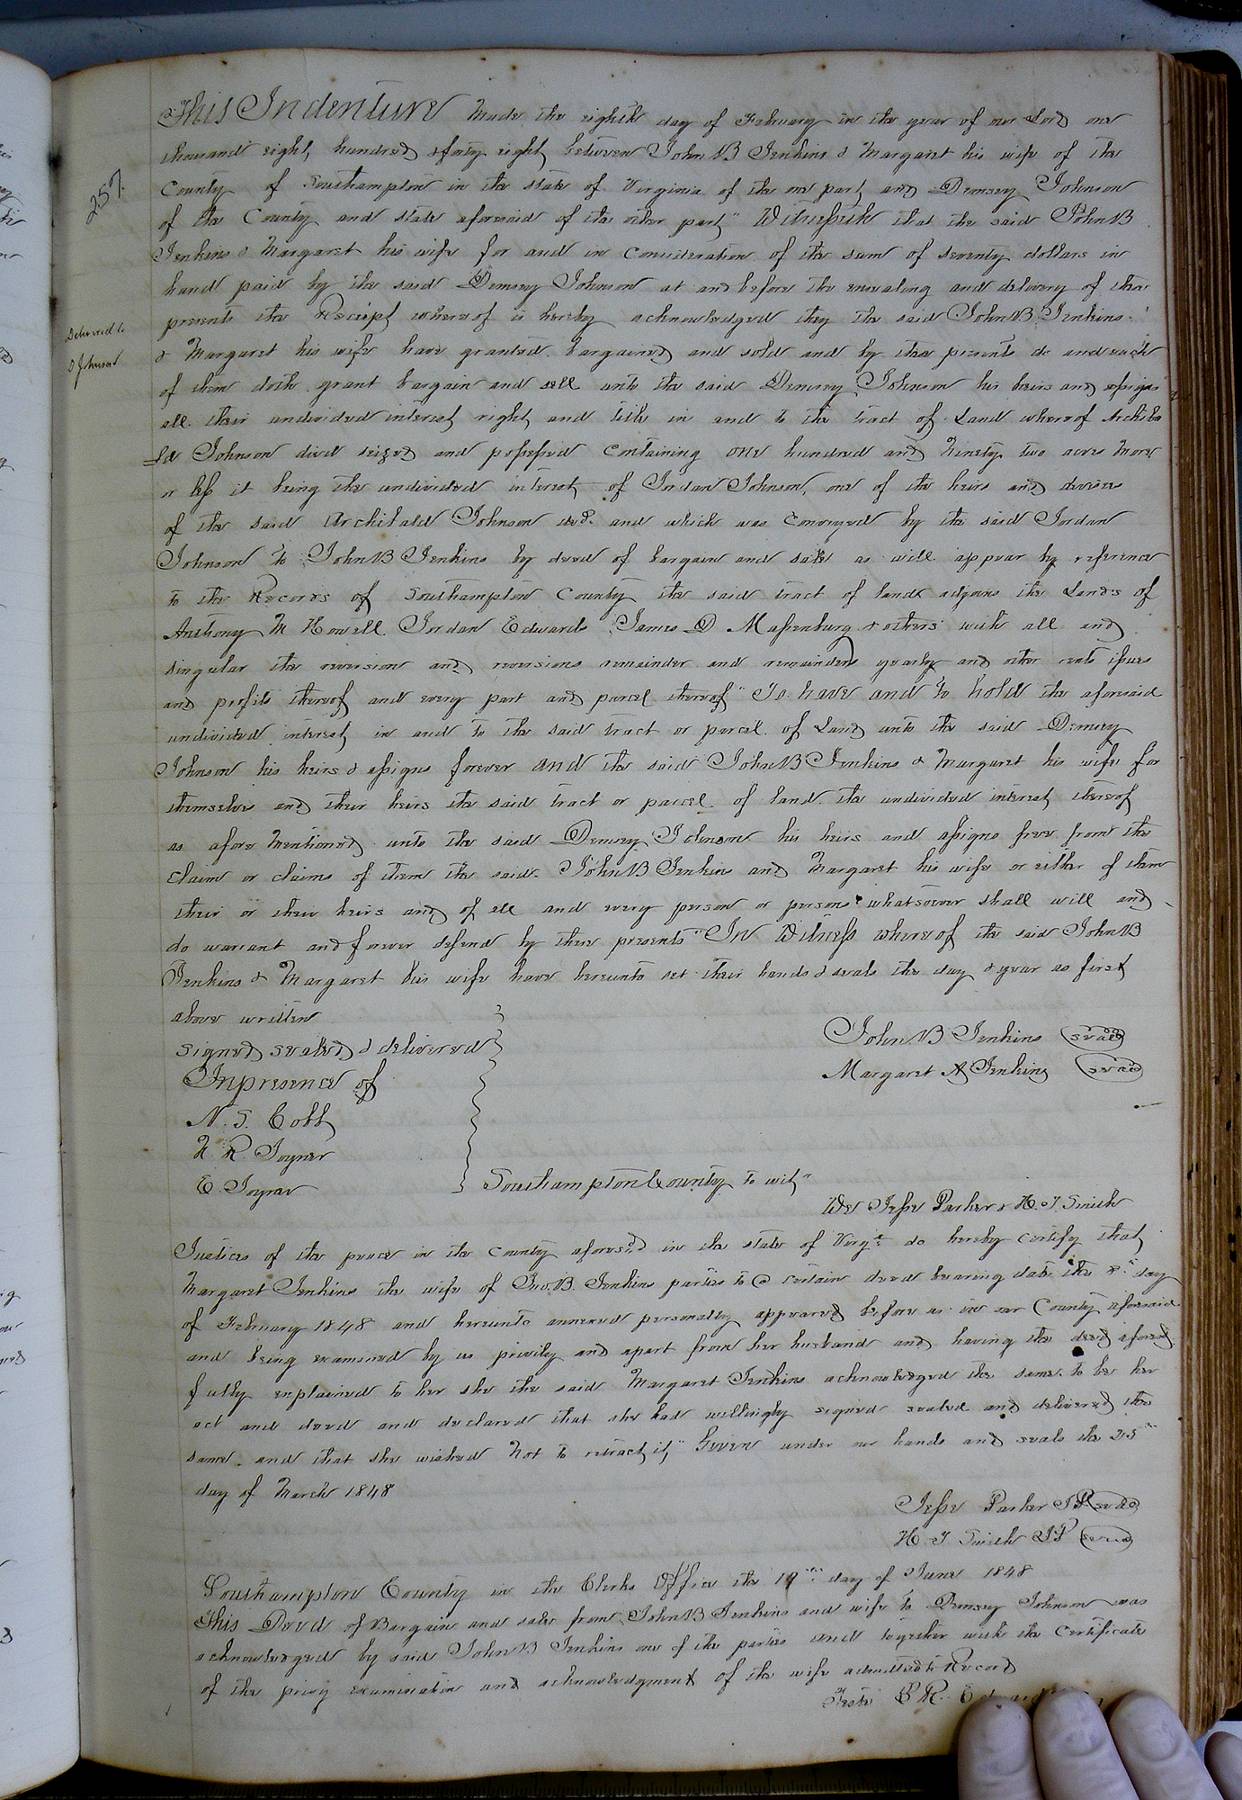 257.
Delivered to
D Johnson
This Indenture Made the eighth day of February in the year of our Lord one
thousand eight hundred & forty eight between John B Jenkins & Margaret his wife of the
County of Southampton in the state of Virginia of the one part and Demsey Johnson
of the County and state aforesaid of the other part" Witnesseth that the said John B
Jenkins & Margaret his wife for and in Consideration of the sum of seventy dollars in
hand paid by the said Demsey Johnson at and before the ensealing and delivery of these
presents the Receipt whereof is hereby acknowledged they the said John B Jenkins
& Margaret his wife have granted bargained and sold and by these presents do and each
of them doth grant bargain and sell unto the said Demsey Johnson his heirs and assigns
all their undivided interest right and title in and to the tract of Land whereof Archiba
ld Johnson died seized and possessed Containing one hundred and Ninety two acres More
or less it being the undivided interest of Jordan Johnson, one of the heirs and devisees
of the said Archibald Johnson decd. and which was Conveyed by the said Jordan
Johnson to John B Jenkins by deed of bargain and sale as will appear by reference
to the Records of Southampton County the said tract of land adjoins the Lands of
Anthony M Howell Jordan Edwards James D Massenburg & others with all and
singular the reversion and reversions remainder and remainders yearly and other rents issues
and profits thereof and every part and parcel thereof" To have and to hold the aforesaid
undivided interest in and to the said tract or parcel of Land unto the said Demsey
Johnson his heirs & assigns forever And the said John B Jenkins & Margaret his wife for
themselves and their heirs the said tract or parcel of land the undivided interest thereof
as afore Mentioned unto the said Demsey Johnson his heirs and assigns free from the
Claim or claims of them the said John B Jenkins and Margaret his wife or either of them
their or their heirs and of all and every person or persons whatsoever shall will and
do warrant and forever defend by these presents" In Witness whereof the said John B
Jenkins & Margaret his wife have hereunto set their hands & seals the day & year as first
above written
signed sealed & delivered
In presence of
N. S. Cobb
N. R. Joyner
E. Joyner
John B Jenkins seal
Margaret A Jenkins seal
Southampton County to wit"
We Jesse Parker & H. T. Smith
Justices of the peace in the County aforesd in the state of Virga do hereby Certify that
Margaret Jenkins the wife of Jno. B. Jenkins parties to a certain deed bearing date the 8th day
of February 1848 and hereunto annexed personally appeared before us in our County aforesaid
and being examined by us privily and apart from her husband and having the deed aforesd
fully explained to her she the said Margaret Jenkins acknowledged the same to be her
act and deed and declared that she had willingly signed sealed and delivered the
same and that she wished not to retract it" Given under our hands and seals the 25th
day of March 1848
Jesse Parker JP seal
H. T. Smith JP seal
Southampton County in the Clerks Office the 19th day of June 1848
This Deed of Bargain and sale from John B Jenkins and wife to Demsey Johnson was
acknowledged by said John B Jenkins one of the parties and together with the Certificate
of the privy examination and acknowledgment of the wife admitted to Record
Teste